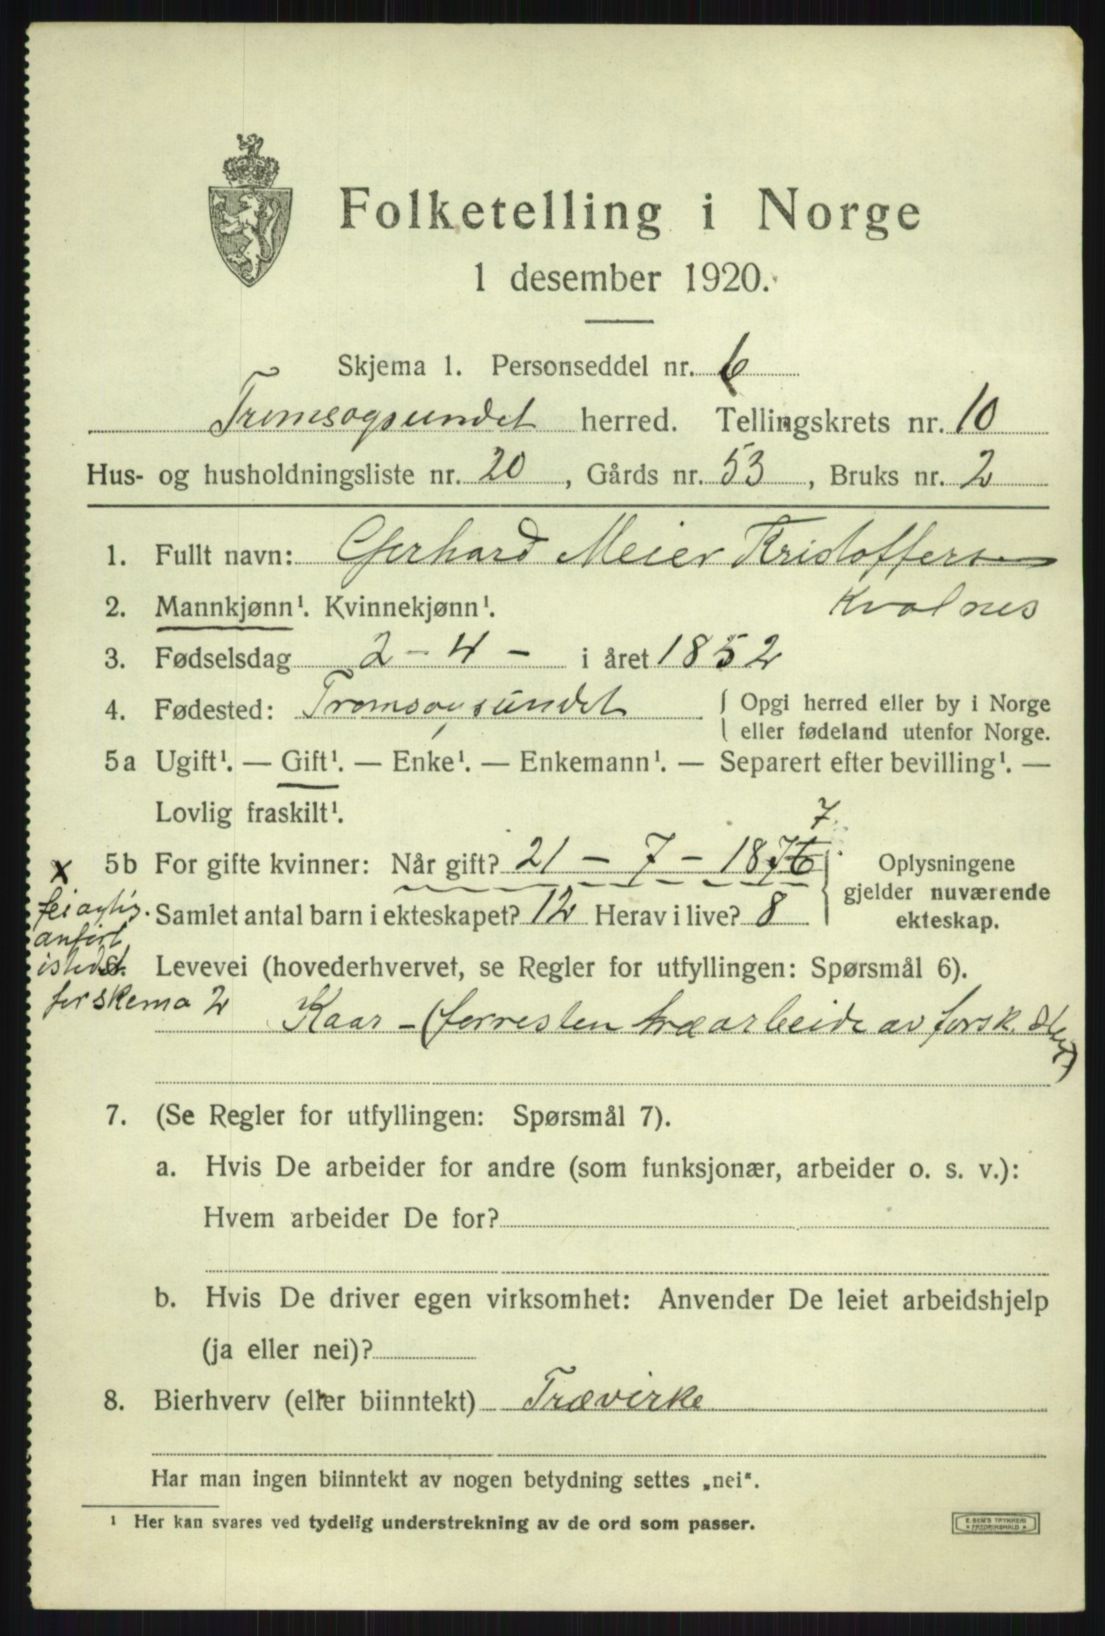 Folketelling i Norge
1 desember 1920.
Skjema 1. Personseddel nr. 6
Tromsøysundet herred. Tellingskrets nr. 10
Hus- og husholdningsliste nr. 20, Gårds nr. 53, Bruks nr. 2
1. Fullt navn: Gerhard Meier Kristoffersen
Kvalnes
2. Mannkjønn¹. Kvinnekjønn¹.
3. Fødselsdag 2 - 4 - i året 1852
4. Fødested: Tromsøysundet { Opgi herred eller by i Norge
eller fødeland utenfor Norge.
5a Ugift¹. — Gift¹. — Enke¹. — Enkemann¹. — Separert efter bevilling¹. —
Lovlig fraskilt¹.
7.
x 5b For gifte kvinner: Når gift? 21 - 7 - 1876
Oplysningene
gjelder nuværende
ekteskap.
Samlet antal barn i ekteskapet? 12 Herav i live? 8
anført
6. Levevei (hovederhvervet, se Regler for utfyllingen: Spørsmål 6).
for skema 2
Kaar - (forresten træarbeide av forsk.
7. (Se Regler for utfyllingen: Spørsmål 7).
a. Hvis De arbeider for andre (som funksjonær, arbeider o. s. v.):
Hvem arbeider De for?
b. Hvis De driver egen virksomhet: Anvender De leiet arbeidshjelp
(ja eller nei)?
8. Bierhverv (eller biinntekt) Trævirke
Har man ingen biinntekt av nogen betydning settes „nei“.
¹ Her kan svares ved tydelig understrekning av de ord som passer.
E. SEM'S TRYKKERI
FREDRIKSHALD